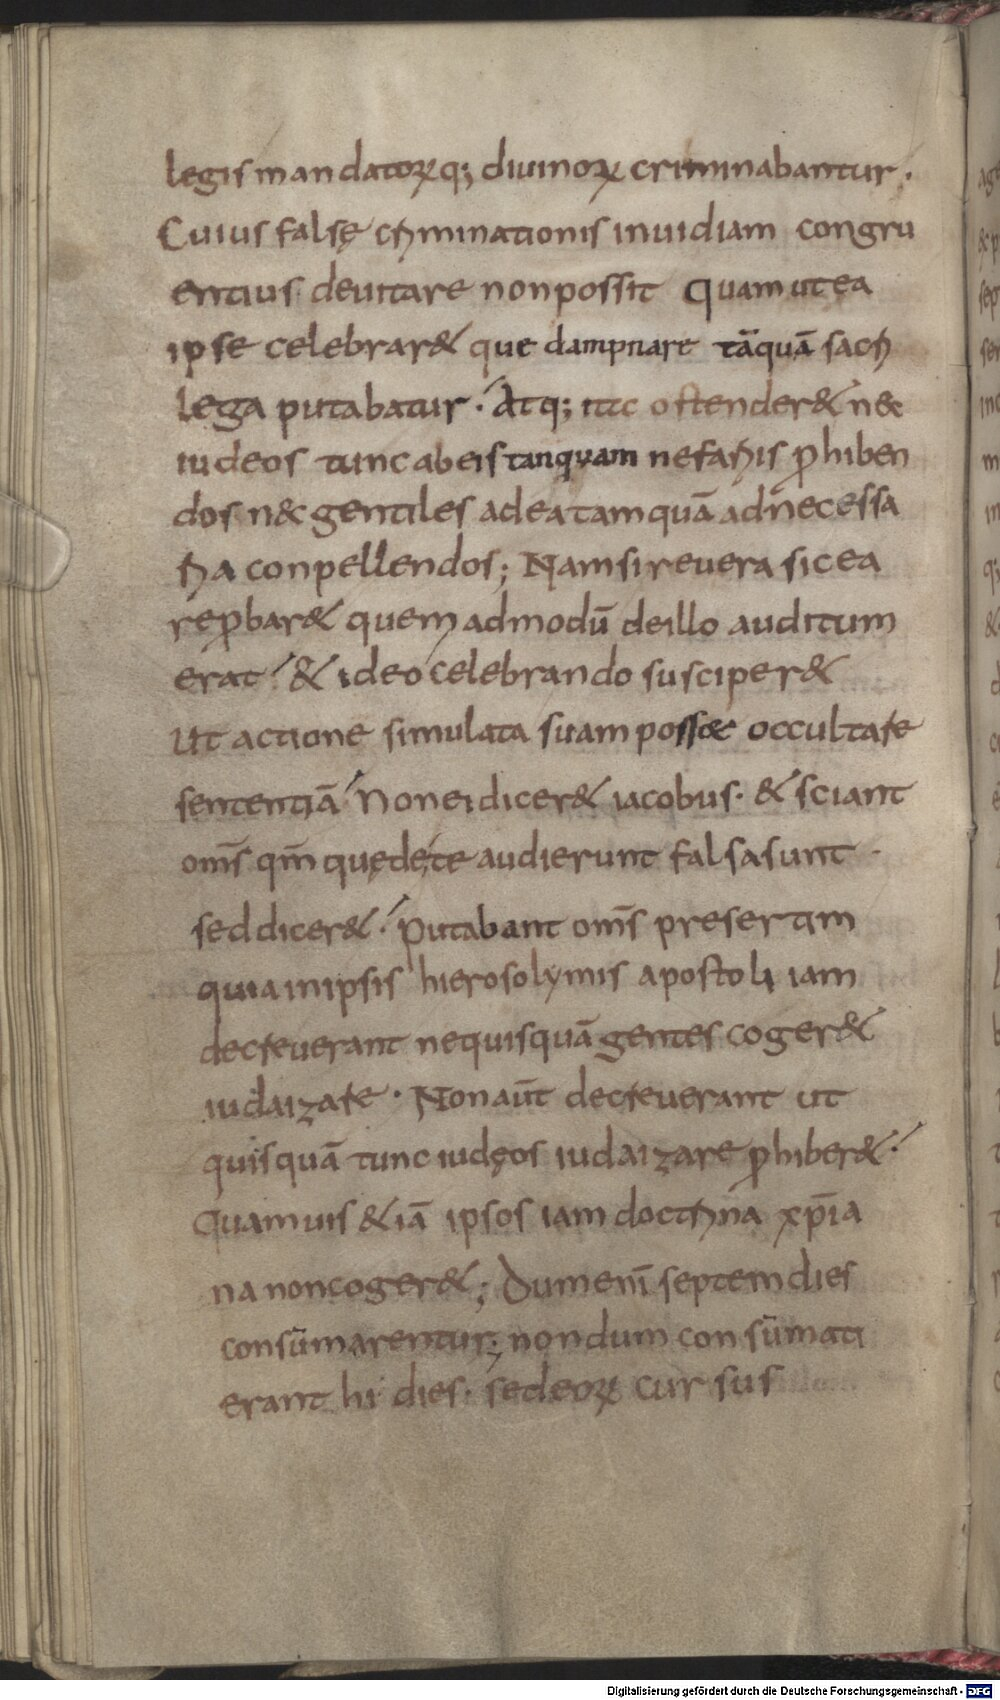 legis mandatoꝝq; diuinoꝝ criminabantur.
Cuius falsę criminationis inuidiam congru
entius deuitare non possit Quam ut ea
ipse celebrar& que dampnare tāquā sacri
lega putabatur. Atq; ita ostender& n&
iudeos tunc ab eis tanquam nefariis ꝓhiben
dos n& gentiles ad ea tamquā ad necessa
ria conpellendos; Nam si reuera sic ea
reꝓbar& quem admodū de illo auditum
erat & ideo celebrando susciper&
Ut actione simulata suam poss& occultare
sententiā Non ei dicer& iacobus. & sciant
om̄s qm̄ quę de te audierunt falsa sunt.
sed dicer&. Putabant om̄s presertim
quia in ipsis hierosolymis apostoli iam
decreuerant ne quisquā gentes coger&
iudaizare. Non aūt decreuerant ut
quisquā tunc iudęos iudaizare ꝓhiber&.
Quamuis &iā ipsos iam doctrina xp̄ia
na non coger&; Dum enī septem dies
consūmarentur; nondum consūmati
erant hi dies. sed eoꝝ cursus
Digitalisierung gefördert durch die Deutsche Forschungsgemeinschaft - DFG